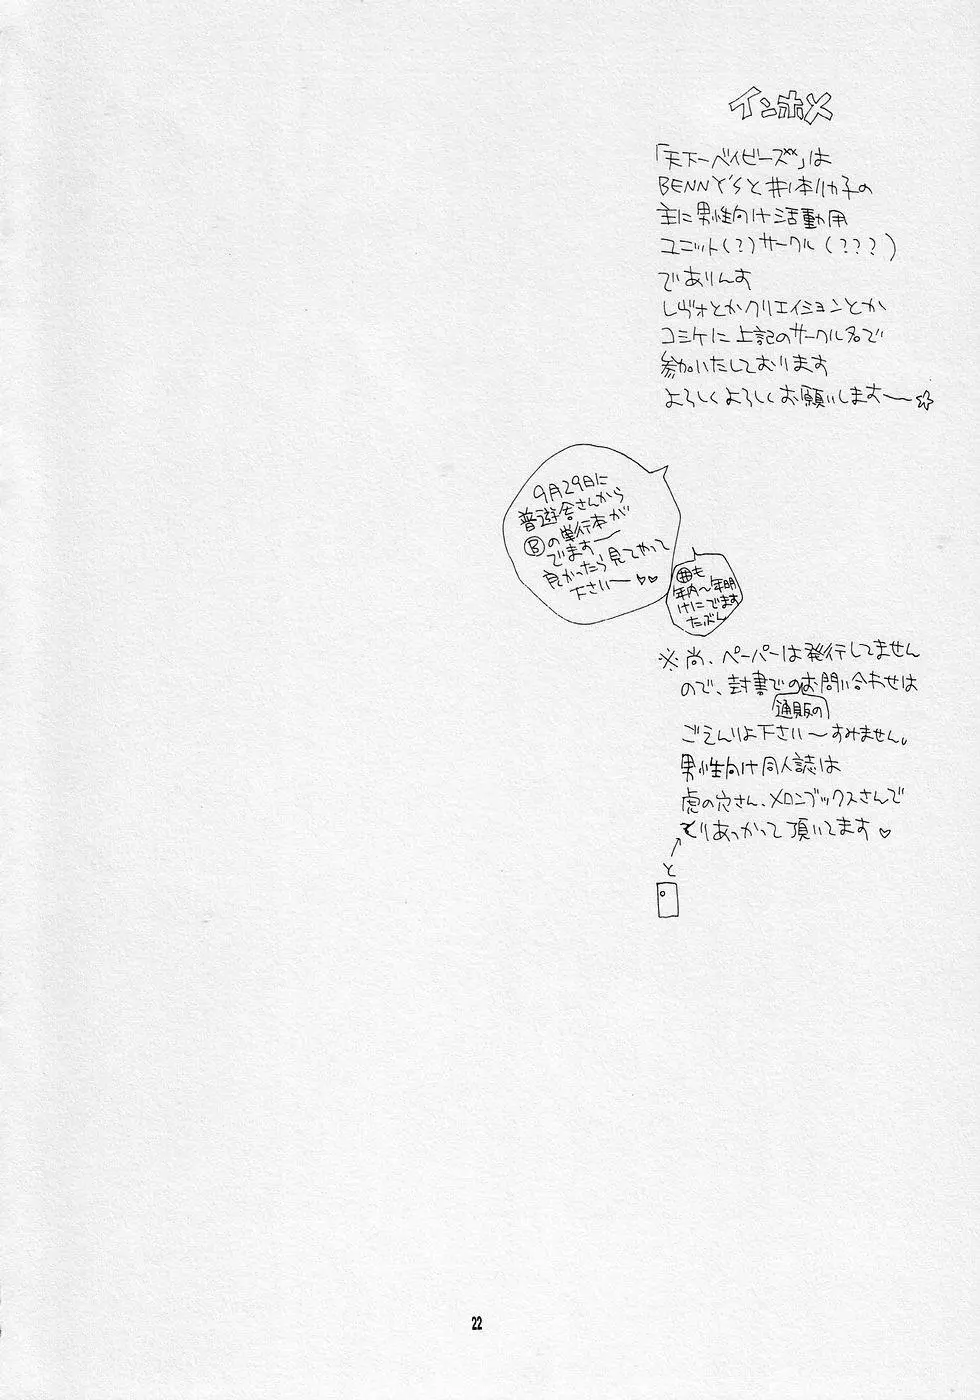 インホメ
「天下一ベイビーズ××」は
BENNY'Sと井本リカ子の
主に男性向け活動用
ユニット(?)サークル(???)
でありんす
レヴォとかクリエイションとか
コミケに上記のサークル名で
参加いたしております
よろしくよろしくお願いします〜☆
9月29日に
普遊舎さんから
Ⓑの単行本が
でます〜
良かったら見てやって
下さい〜♡♡
㊥も
年内〜年明
けにでます
たぶん
※尚、ペーパーは発行してません
ので、封書でのお問い合わせは
通販の
ごえんりょ下さい〜すみません。
男性向け同人誌は
虎の穴さん、メロンブックスさんで
とりあつかって頂いてます♡
と
22